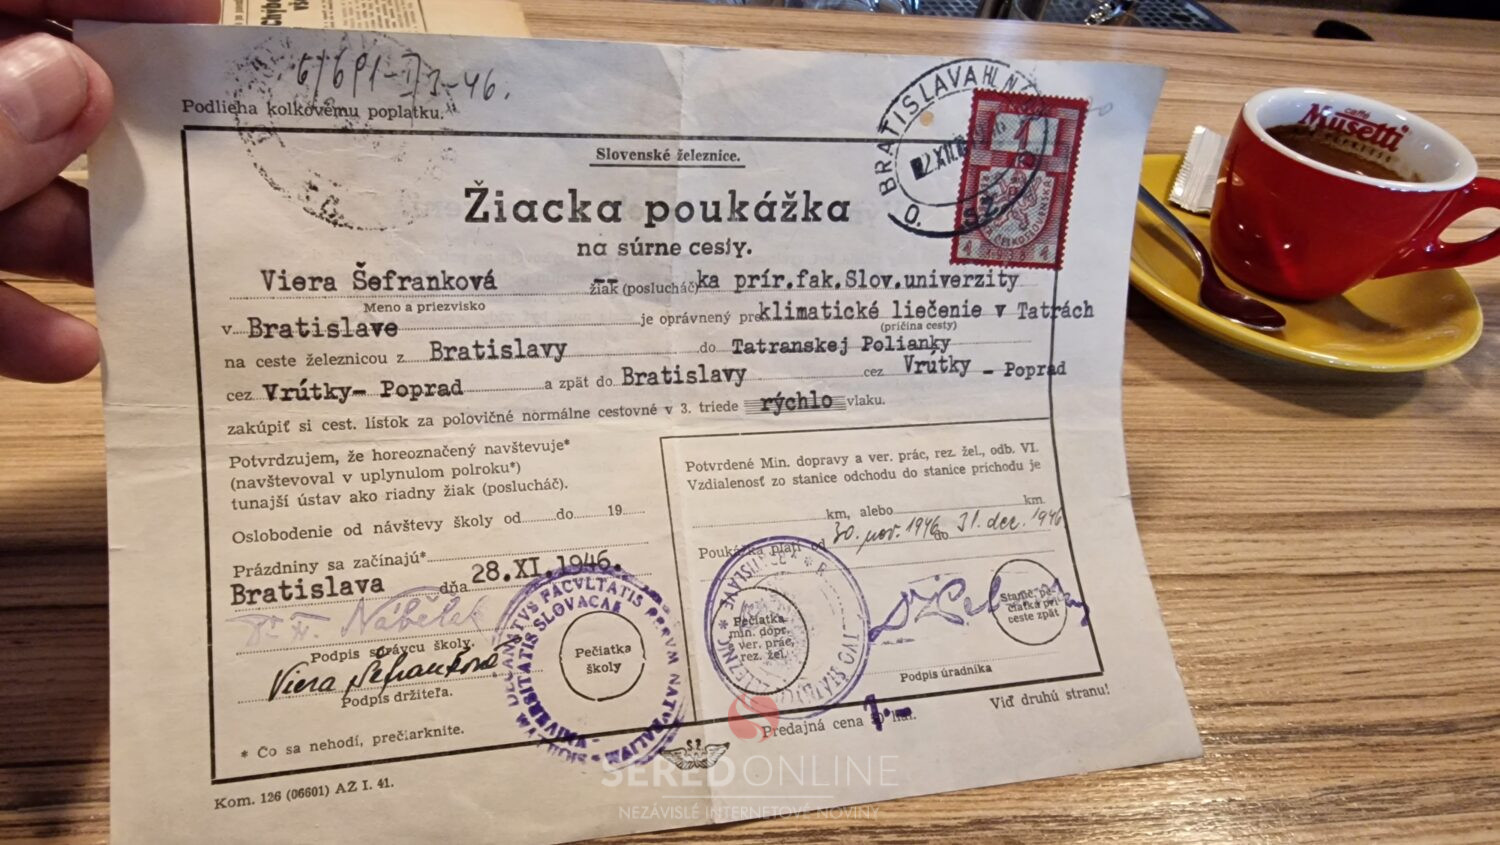 6/691-I/3-46.
Podlieha kolkovému poplatku.
BRATISLAVA HL. N.
Slovenské železnice.
Žiacka poukážka
na súrne cesty.
Viera Šefranková žiak (poslucháč)ka prír.fak.Slov.univerzity
Meno a priezvisko
v Bratislave je oprávnený pre klimatické liečenie v Tatrách
(príčina cesty)
na ceste železnicou z Bratislavy do Tatranskej Polianky
cez Vrútky- Poprad a zpät do Bratislavy cez Vrútky - Poprad
zakúpiť si cest. lístok za polovičné normálne cestovné v 3. triede rýchlo vlaku.
Potvrdzujem, že horeoznačený navštevuje*
(navštevoval v uplynulom polroku*)
tunajší ústav ako riadny žiak (poslucháč).
Oslobodenie od návštevy školy od do 19
Prázdniny sa začínajú*
Bratislava dňa 28.XI.1946.
Podpis správcu školy.
Viera Šefranková
Podpis držiteľa.
* Čo sa nehodí, prečiarknite.
Pečiatka
školy
UNIVERSITATIS SLOVACAE
Potvrdené Min. dopravy a ver. prác, rez. žel., odb. VI.
Vzdialenosť zo stanice odchodu do stanice príchodu je
km, alebo km.
Poukážka platí od 30. nov. 1946 do 31. dec. 1946
Pečiatka
min. dopr.
ver. prác,
rez. žel.
Stanič. pe-
čiatka pri
ceste zpät
Podpis úradníka
Predajná cena 1.-
Viď druhú stranu!
Kom. 126 (06601) AŽ I. 41.
SEREDONLINE
NEZÁVISLÉ INTERNETOVÉ NOVINY
caffè
Musetti
ESPRESSO